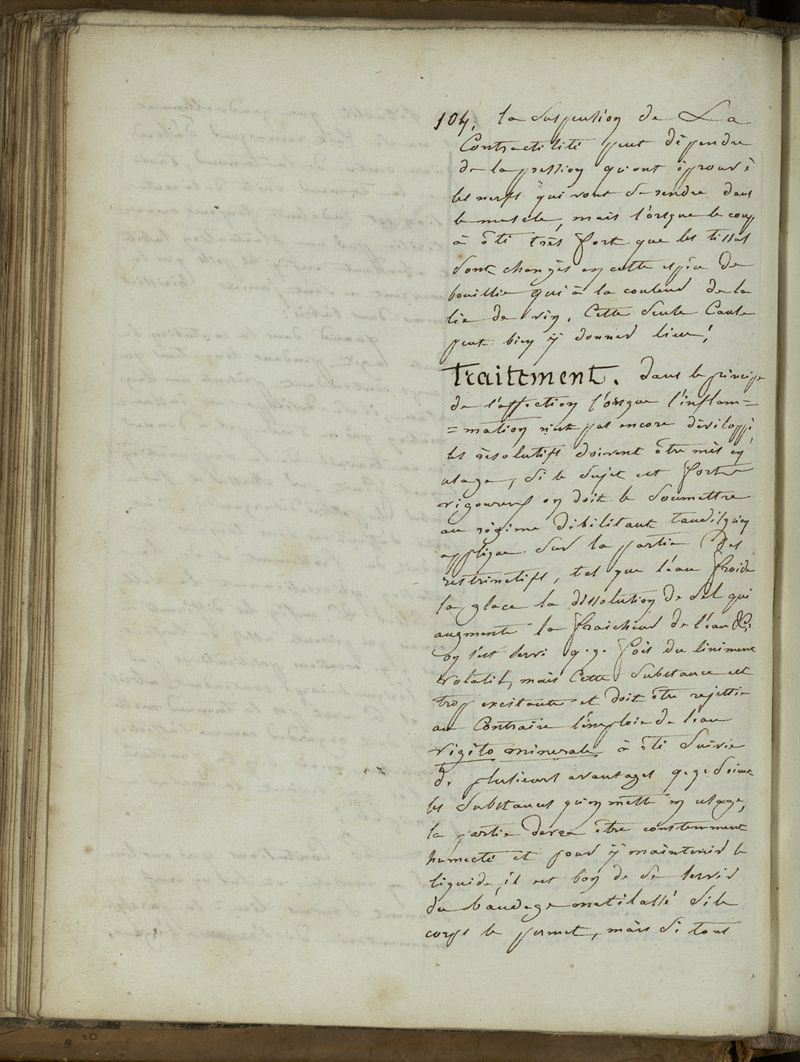 104, la Suspension de La
Contractilité peut dépendre
de la pression qu'ont éprouvé
les nerfs qui vont se rendre dans
le muscle, mais l'orsque le coup
à été très fort que les tissus
sont changés en cette espèce de
bouillie qui à la couleur de la
lie de vin, Cette Seule Cause
peut bien y donner lieu!
Traitement. dans le principe
de l'affection l'orsque l'inflam=
=mation n'est pas encore développé
les résolutifs doivent être mis en
usage, si le sujet est fort
vigoureux on doit le Soumettre
au régime débilitant tandis qu'on
applique sur la partie des
restrinctifs, tel que l'eau froide
la glace la dissolution de Sel qui
augmente la fraicheur de l'eau &c
on s'est servi q.q. fois du liniment
volatil, mais Cette Substance est
trop excitante et doit être rejettée
au Contraire l'emploie de l'eau
vigéto minerale à été Suivie
de plusieurs avantages q.q. Soient
les Substances qu'on mette en usage,
la partie devra être constenment
humecté et pour y maintenir le
liquide, il est bon de se servir
du bandage matilassé si le
corps le permet, mais si tout